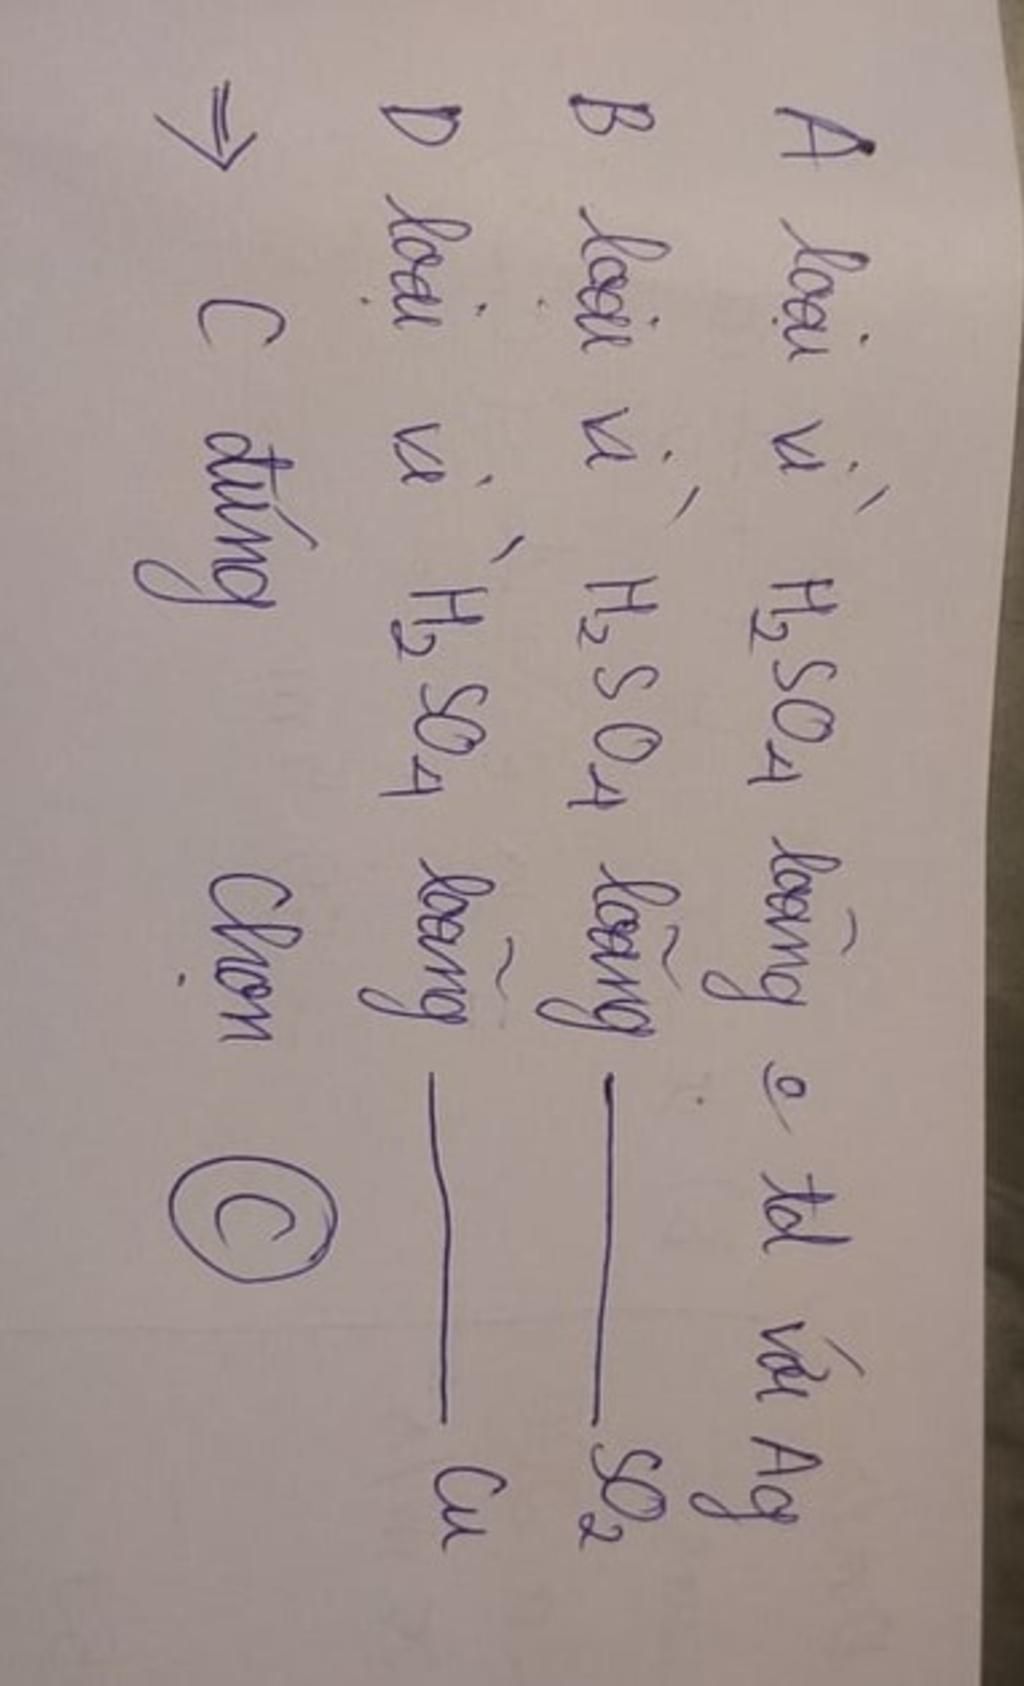 A loại vì H₂SO₄ loãng o td với Ag
B loại vì H₂SO₄ loãng ——— SO₂
D loại vì H₂SO₄ loãng ——— Cu
⇒ C đúng Chọn C